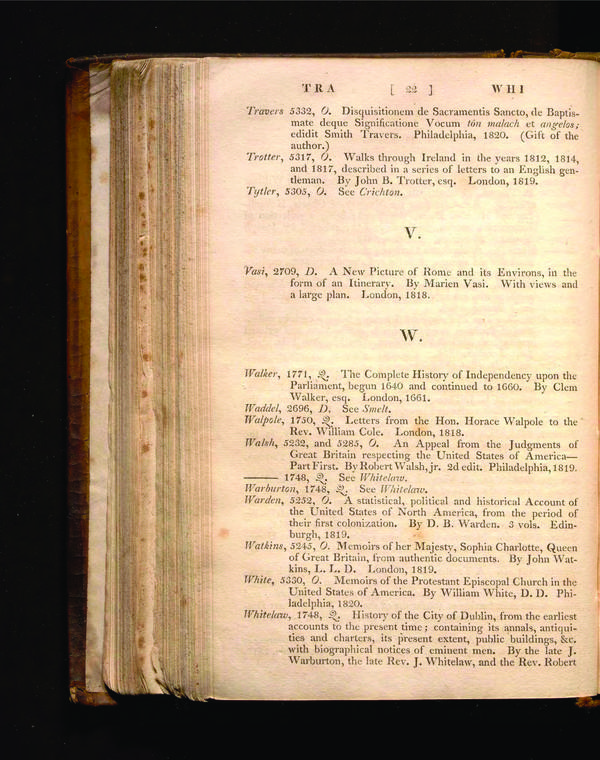 TRA [ 22 ] WHI
Travers 5332, O. Disquisitionem de Sacramentis Sancto, de Baptis-
mate deque Significatione Vocum tôn malach et angelos;
edidit Smith Travers. Philadelphia, 1820. (Gift of the
author.)
Trotter, 5317, O. Walks through Ireland in the years 1812, 1814,
and 1817, described in a series of letters to an English gen-
tleman. By John B. Trotter, esq. London, 1819.
Tytler, 5305, O. See Crichton.
V.
Vasi, 2709, D. A New Picture of Rome and its Environs, in the
form of an Itinerary. By Marien Vasi. With views and
a large plan. London, 1818.
W.
Walker, 1771, Q. The Complete History of Independency upon the
Parliament, begun 1640 and continued to 1660. By Clem
Walker, esq. London, 1661.
Waddel, 2696, D. See Smelt.
Walpole, 1750, Q. Letters from the Hon. Horace Walpole to the
Rev. William Cole. London, 1818.
Walsh, 5232, and 5285, O. An Appeal from the Judgments of
Great Britain respecting the United States of America—
Part First. By Robert Walsh, jr. 2d edit. Philadelphia, 1819.
——— 1748, Q. See Whitelaw.
Warburton, 1748, Q. See Whitelaw.
Warden, 5252, O. A statistical, political and historical Account of
the United States of North America, from the period of
their first colonization. By D. B. Warden. 3 vols. Edin-
burgh, 1819.
Watkins, 5245, O. Memoirs of her Majesty, Sophia Charlotte, Queen
of Great Britain, from authentic documents. By John Wat-
kins, L. L. D. London, 1819.
White, 5330, O. Memoirs of the Protestant Episcopal Church in the
United States of America. By William White, D. D. Phi-
ladelphia, 1820.
Whitelaw, 1748, Q. History of the City of Dublin, from the earliest
accounts to the present time; containing its annals, antiqui-
ties and charters, its present extent, public buildings, &c.
with biographical notices of eminent men. By the late J.
Warburton, the late Rev. J. Whitelaw, and the Rev. Robert